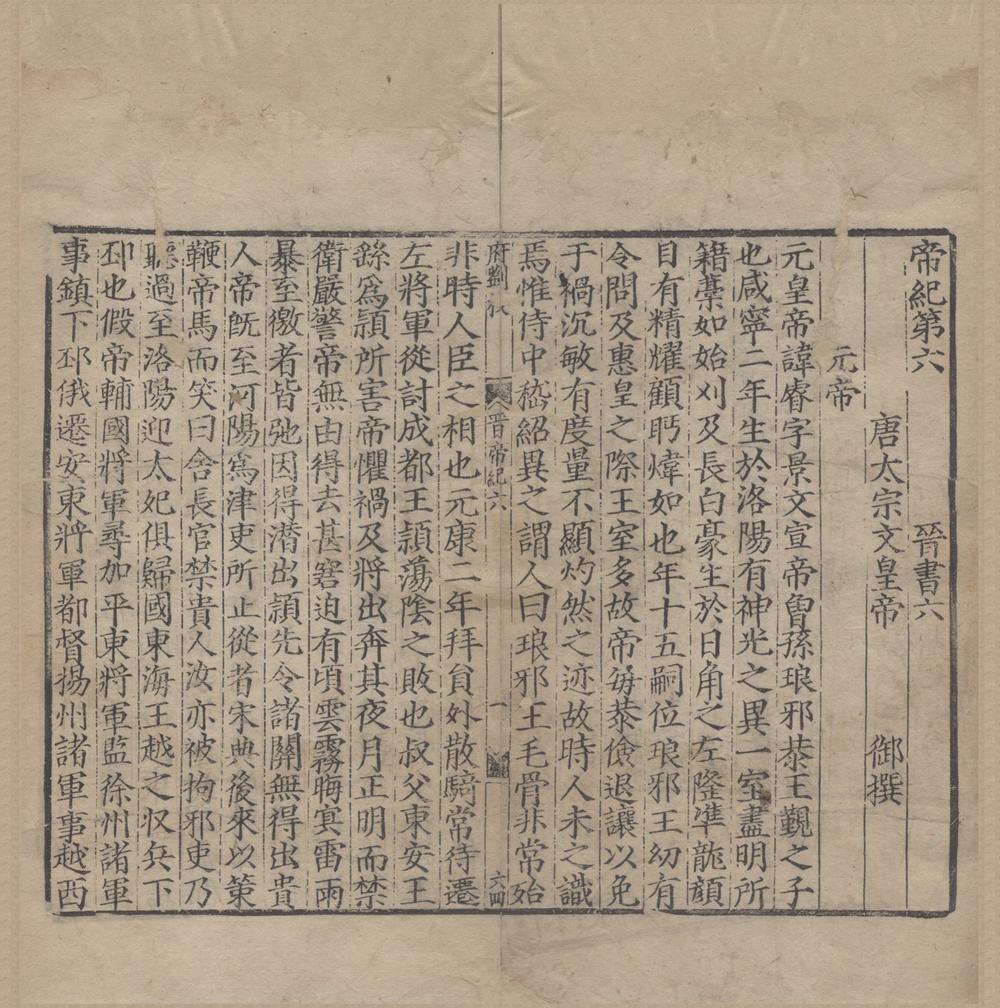 帝紀第六 晉書六
唐太宗文皇帝 御撰
元帝
元皇帝諱睿字景文宣帝曾孫琅邪恭王覲之子
也咸寧二年生於洛陽有神光之異一室盡明所
籍藁如始刈及長白豪生於日角之左隆準龍顏
目有精耀顧眄煒如也年十五嗣位琅邪王幼有
令問及惠皇之際王室多故帝每恭儉退讓以免
于禍沉敏有度量不顯灼然之迹故時人未之識
焉惟侍中嵇紹異之謂人曰琅邪王毛骨非常殆
府劉 晉帝紀六 一 六四
非時人臣之相也元康二年拜貟外散騎常待遷
左將軍從討成都王頴蕩隂之敗也叔父東安王
繇爲頴所害帝懼禍及將出奔其夜月正明而禁
衛嚴警帝無由得去甚窘迫有頃雲霧晦冥雷雨
暴至徼者皆弛因得潜出頴先令諸關無得出貴
人帝旣至河陽爲津吏所止從者宋典後來以策
鞭帝馬而笑曰舍長官禁貴人汝亦被拘邪吏乃
聽過至洛陽迎太妃俱歸國東海王越之収兵下
邳也假帝輔國將軍尋加平東將軍監徐州諸軍
事鎮下邳俄遷安東將軍都督揚州諸軍事越西